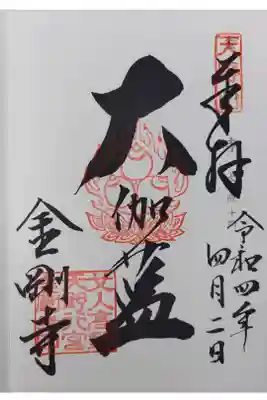 奉拝
令和四年
四月二日
大伽藍
金剛寺